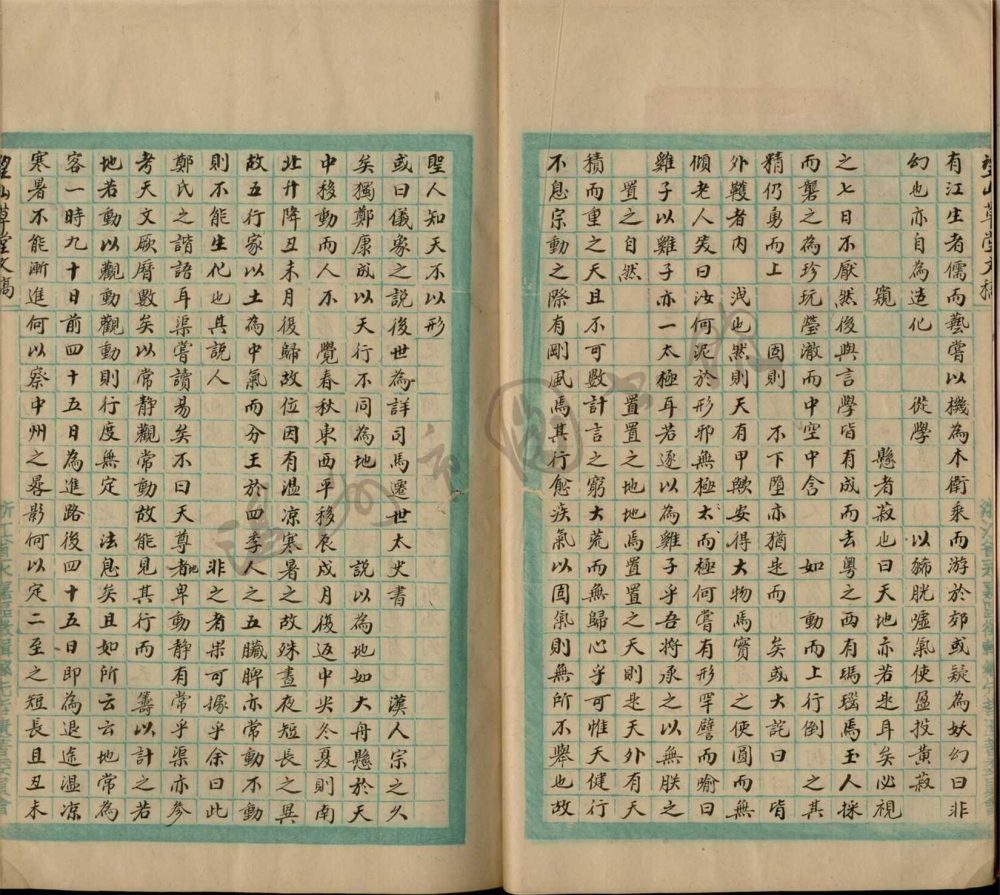 有江生者儒而藝嘗以機為木衛乘而游於郊或疑為妖幻曰非
幻也亦自為造化　　從學　　　以　胱嘘氣使盈投黃荻
　　　　　窺　　　　　懸者寂也曰天地亦若是耳矣必視
之七日不厭然後與言學皆有成而去粤之西有瑪瑙焉玉人採
而礱之為珍玩瑩澈而中空中含　　如　動而上行倒　之其
精仍勇而上　　固則　不下墮亦猶是　矣或大詫曰　皆
外鞾者內　洩也然則天有甲歟安得大物焉實　之使圓而無
傾老人笑曰汝何泥於形邪無極太而極何嘗有形罕譬而喻曰
雞子以雞子亦一太極耳若逐以為雞子乎吾將承之以無朕之
置之自然　　　　　置置之地地焉置置之天則是天外有天
積而重之天且不可數計言之窮大荒而無歸心乎可惟天健行
不息宗動之際有剛風焉其行愈疾氣以固氣則無所不舉也故
聖人知天不以形
或曰儀象之說後世為詳司馬遷世太史書　　　漢人宗之久
矣獨鄭康成以天行不同為地　　　說以為地如大舟懸於天
中移動而人不　覺春秋東西平移辰戍月復返中央冬夏則南
北升降丑未月復歸故位因有溫凉寒暑之故殊晝夜短長之異
故五行家以土為中氣而分王於四季人之五臟脾亦常動不動
則不能生化也其說人　　　　　非之者果可據乎余曰此
鄭氏之諧語耳渠嘗讀易矣不曰天尊地卑動靜有常乎渠亦參
考天文厥曆數矣以常靜觀常動故能見其行而　籌以計之若
地若動以觀動觀動則行度無定　法息矣且如所云云地常為
容一時九十日前四十五日為進路後四十五日即為退途溫凉
寒暑不能漸進何以察中州之晷影何以定二至之短長且丑未
望山草堂文稿